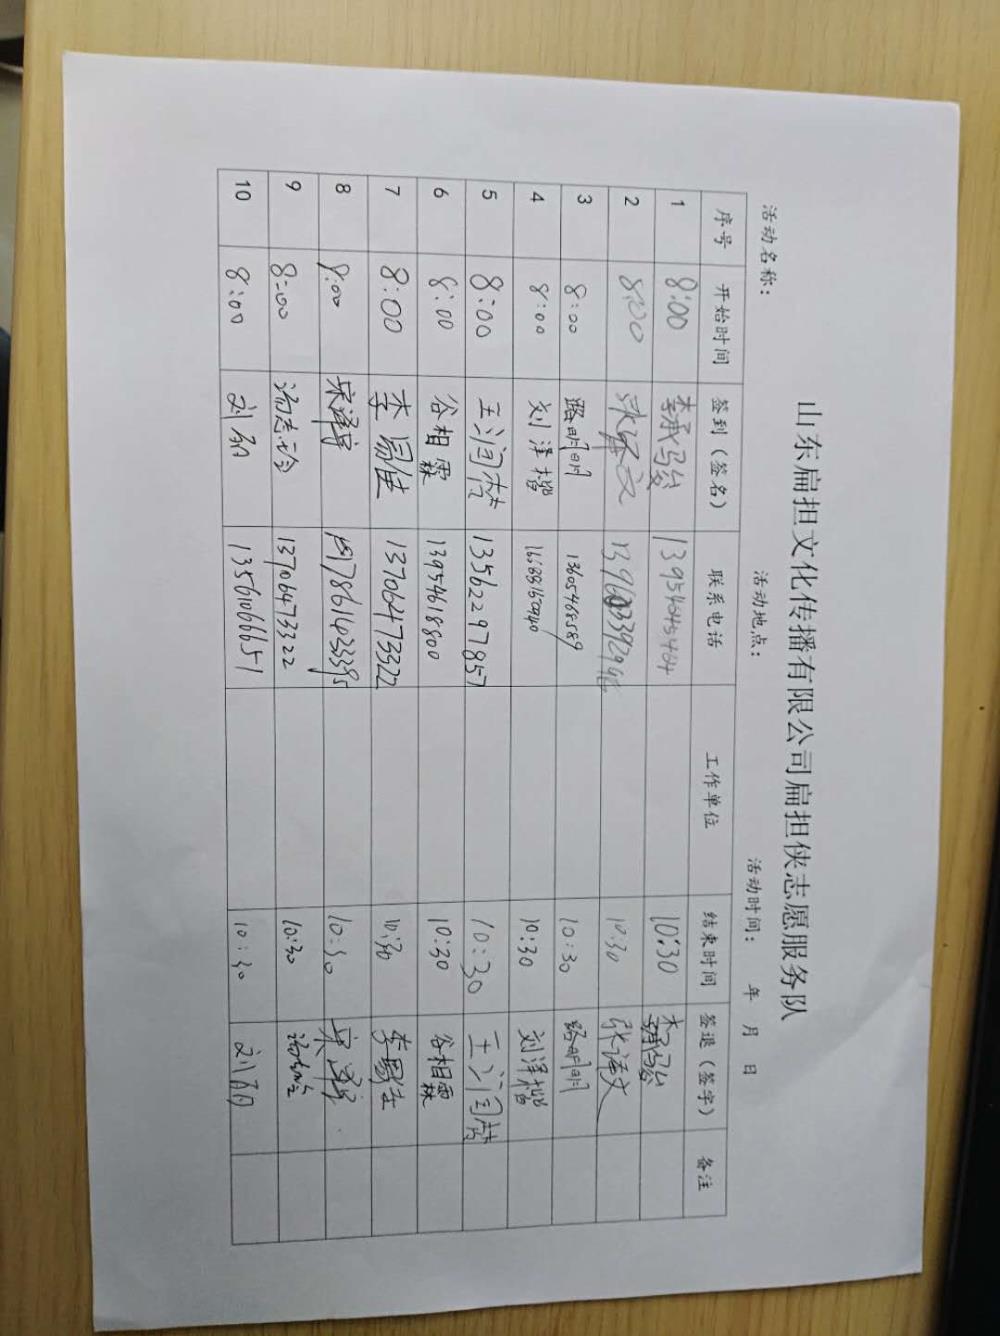 山东扁担文化传播有限公司扁担侠志愿服务队
活动名称： 活动地点： 活动时间： 年 月 日
序号 开始时间 签到（签名） 联系电话 工作单位 结束时间 签退（签字） 备注
1 8:00 李承骏 13954045464 10:30 李承骏
2 8:00 10:30 张译文
3 8:00 路明明 13605468589 10:30 路明明
4 8:00 刘泽楷 10:30 刘泽楷
5 8:00 王润楚 13562297857 10:30 王润楚
6 8:00 谷相霖 13954618800 10:30 谷相霖
7 8:00 李易佳 13706473322 10:30 李易佳
8 8:00 宋泽宇 17861423395 10:30
9 8:00 13706473322 10:30
10 8:00 13561066651 10:30